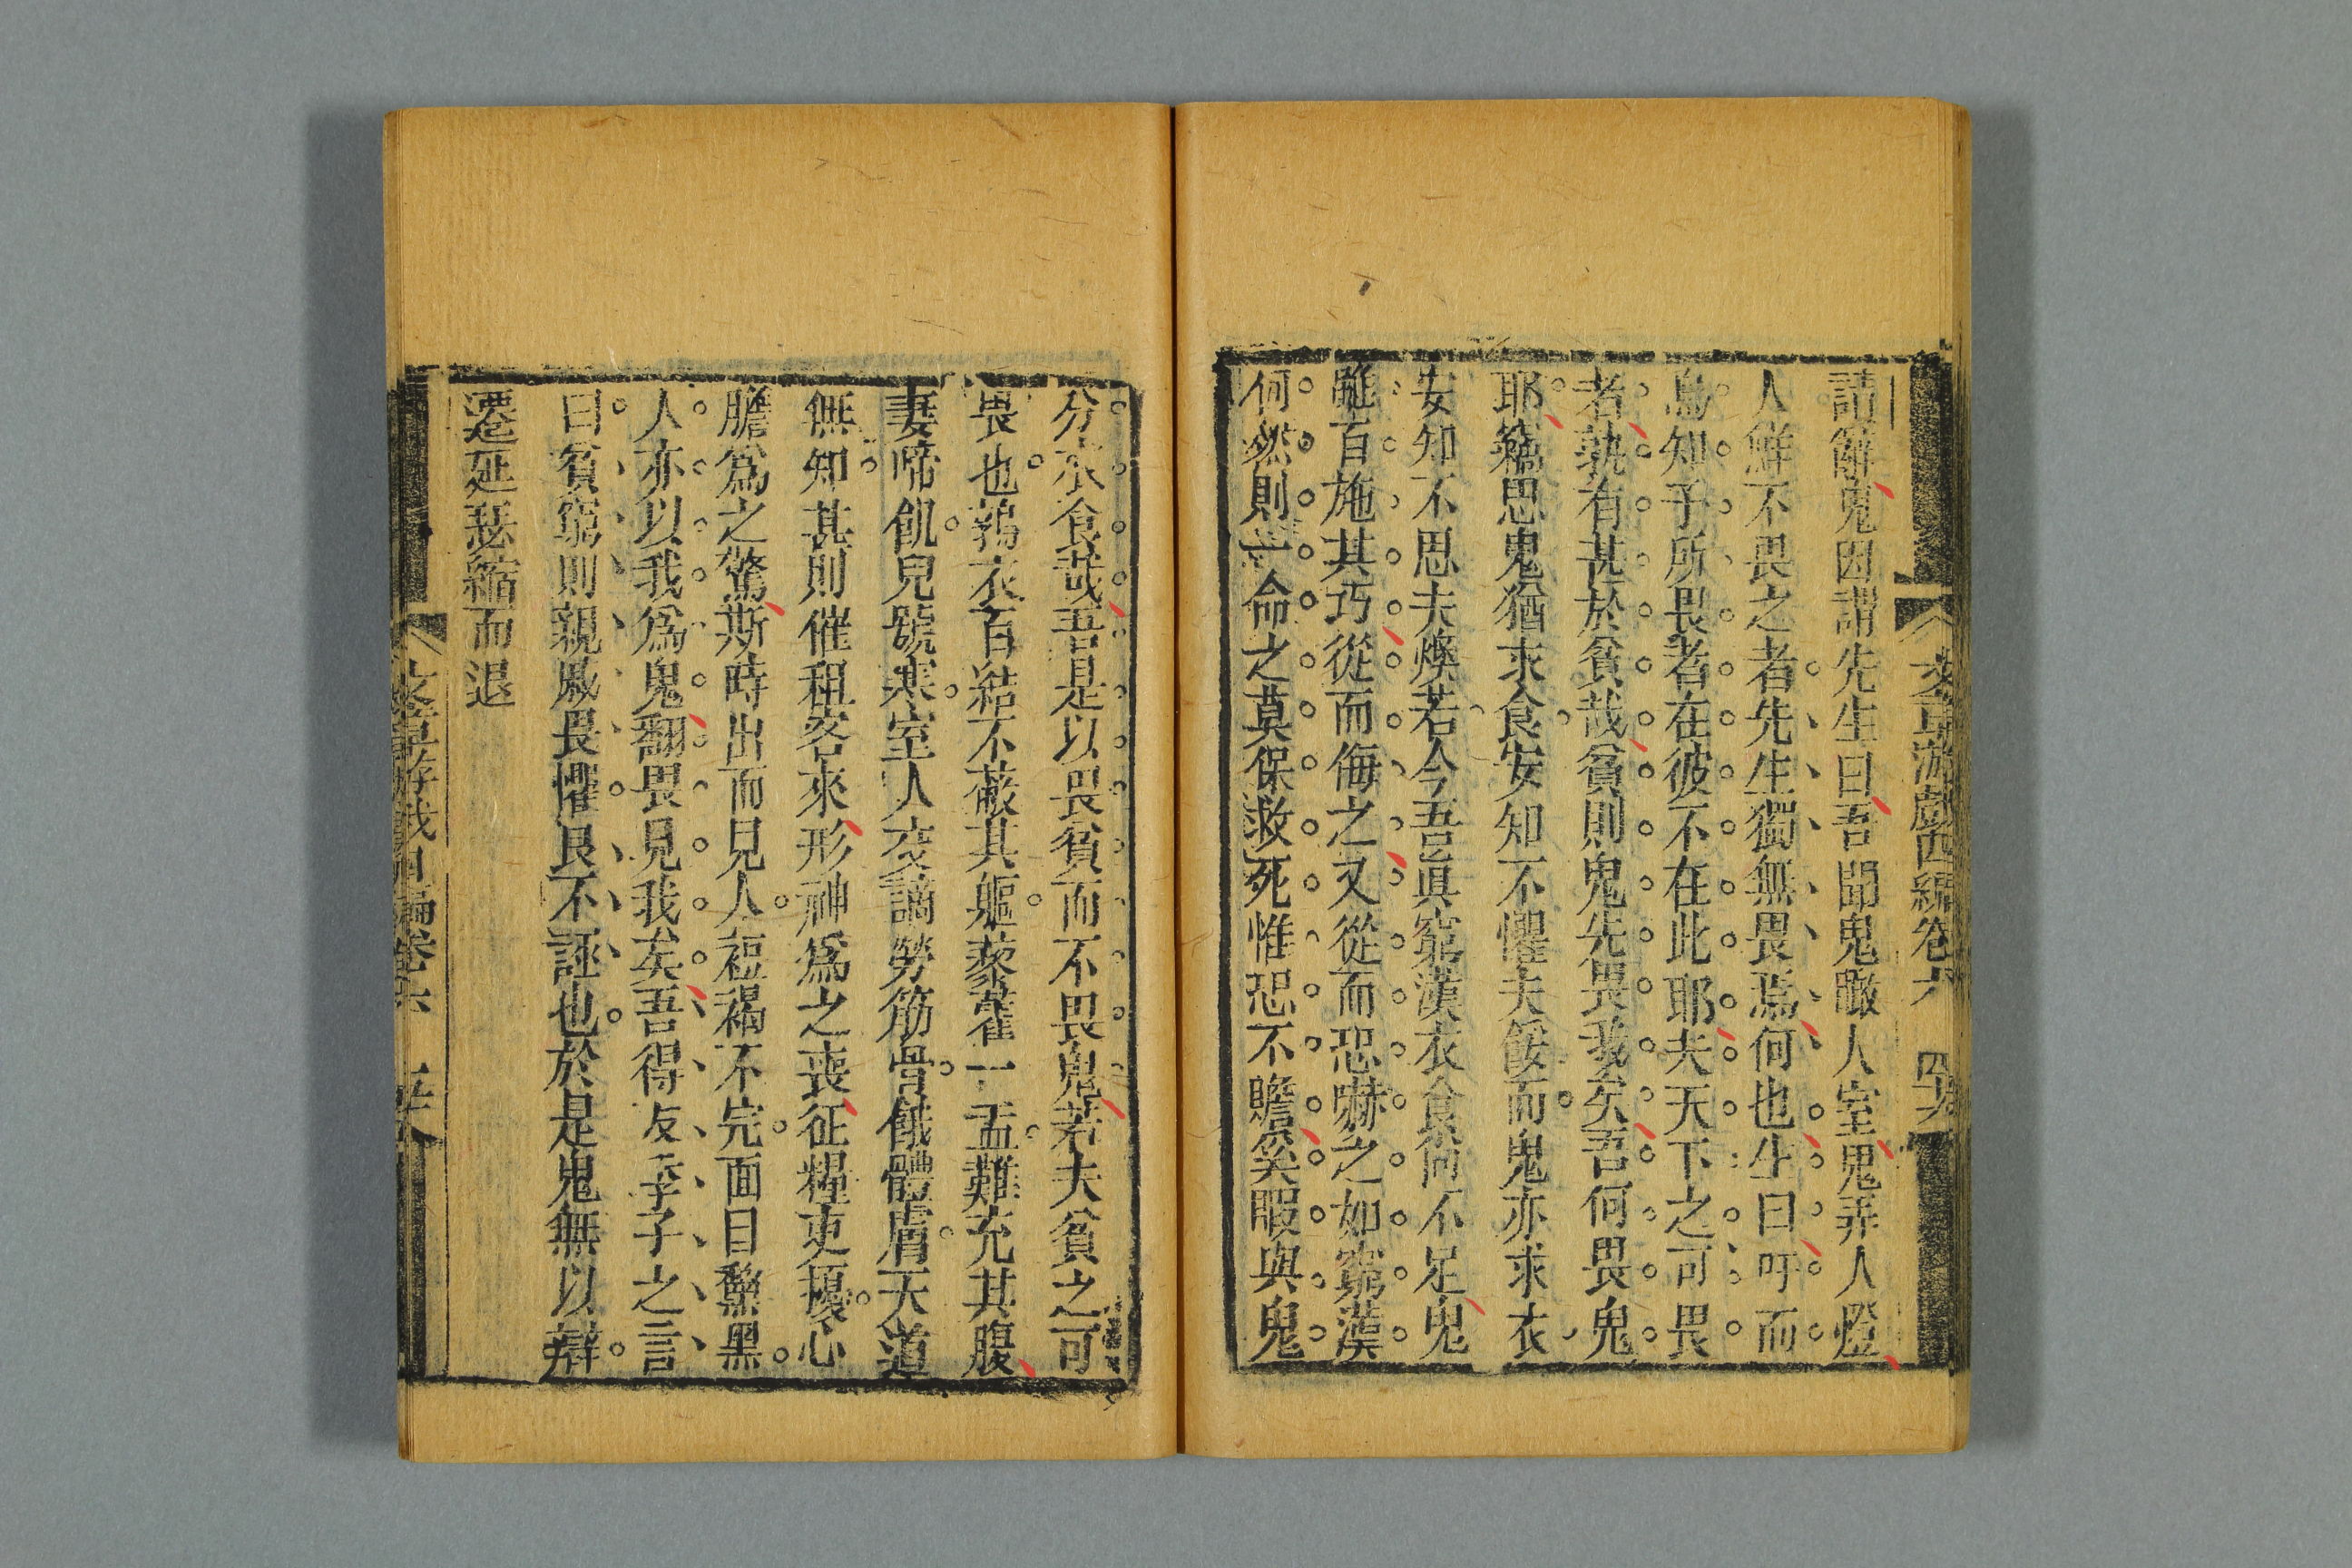 文章游戲四編卷六
請辭鬼因謂先生曰吾聞鬼瞰人室鬼弄人燈
人鮮不畏之者先生獨無畏焉何也生曰吁而
烏知予所畏者在彼不在此耶夫天下之可畏
者孰有甚於貧哉貧則鬼先畏我矣吾何畏鬼
耶竊思鬼猶求食安知不懼夫餒而鬼亦求衣
安知不思夫燠若今吾眞窮漢衣食尙不足鬼
雖百施其巧從而侮之又從而恐嚇之如窮漢
何然則一命之莫保救死惟恐不贍奚暇與鬼
分衣食哉吾是以畏貧而不畏鬼若夫貧之可
畏也鶉衣百結不蔽其軀藜藿一盂難充其腹
妻啼飢兒號寒室人交謫勞筋骨餓體膚天道
無知甚則催租客來形神爲之喪征糧吏擾心
膽爲之驚斯時出而見人裋褐不完面目黧黑
人亦以我爲鬼翻畏見我矣吾得友季子之言
曰貧窮則親戚畏懼良不誣也於是鬼無以辯
遷延恧縮而退
文章游戲四編卷六